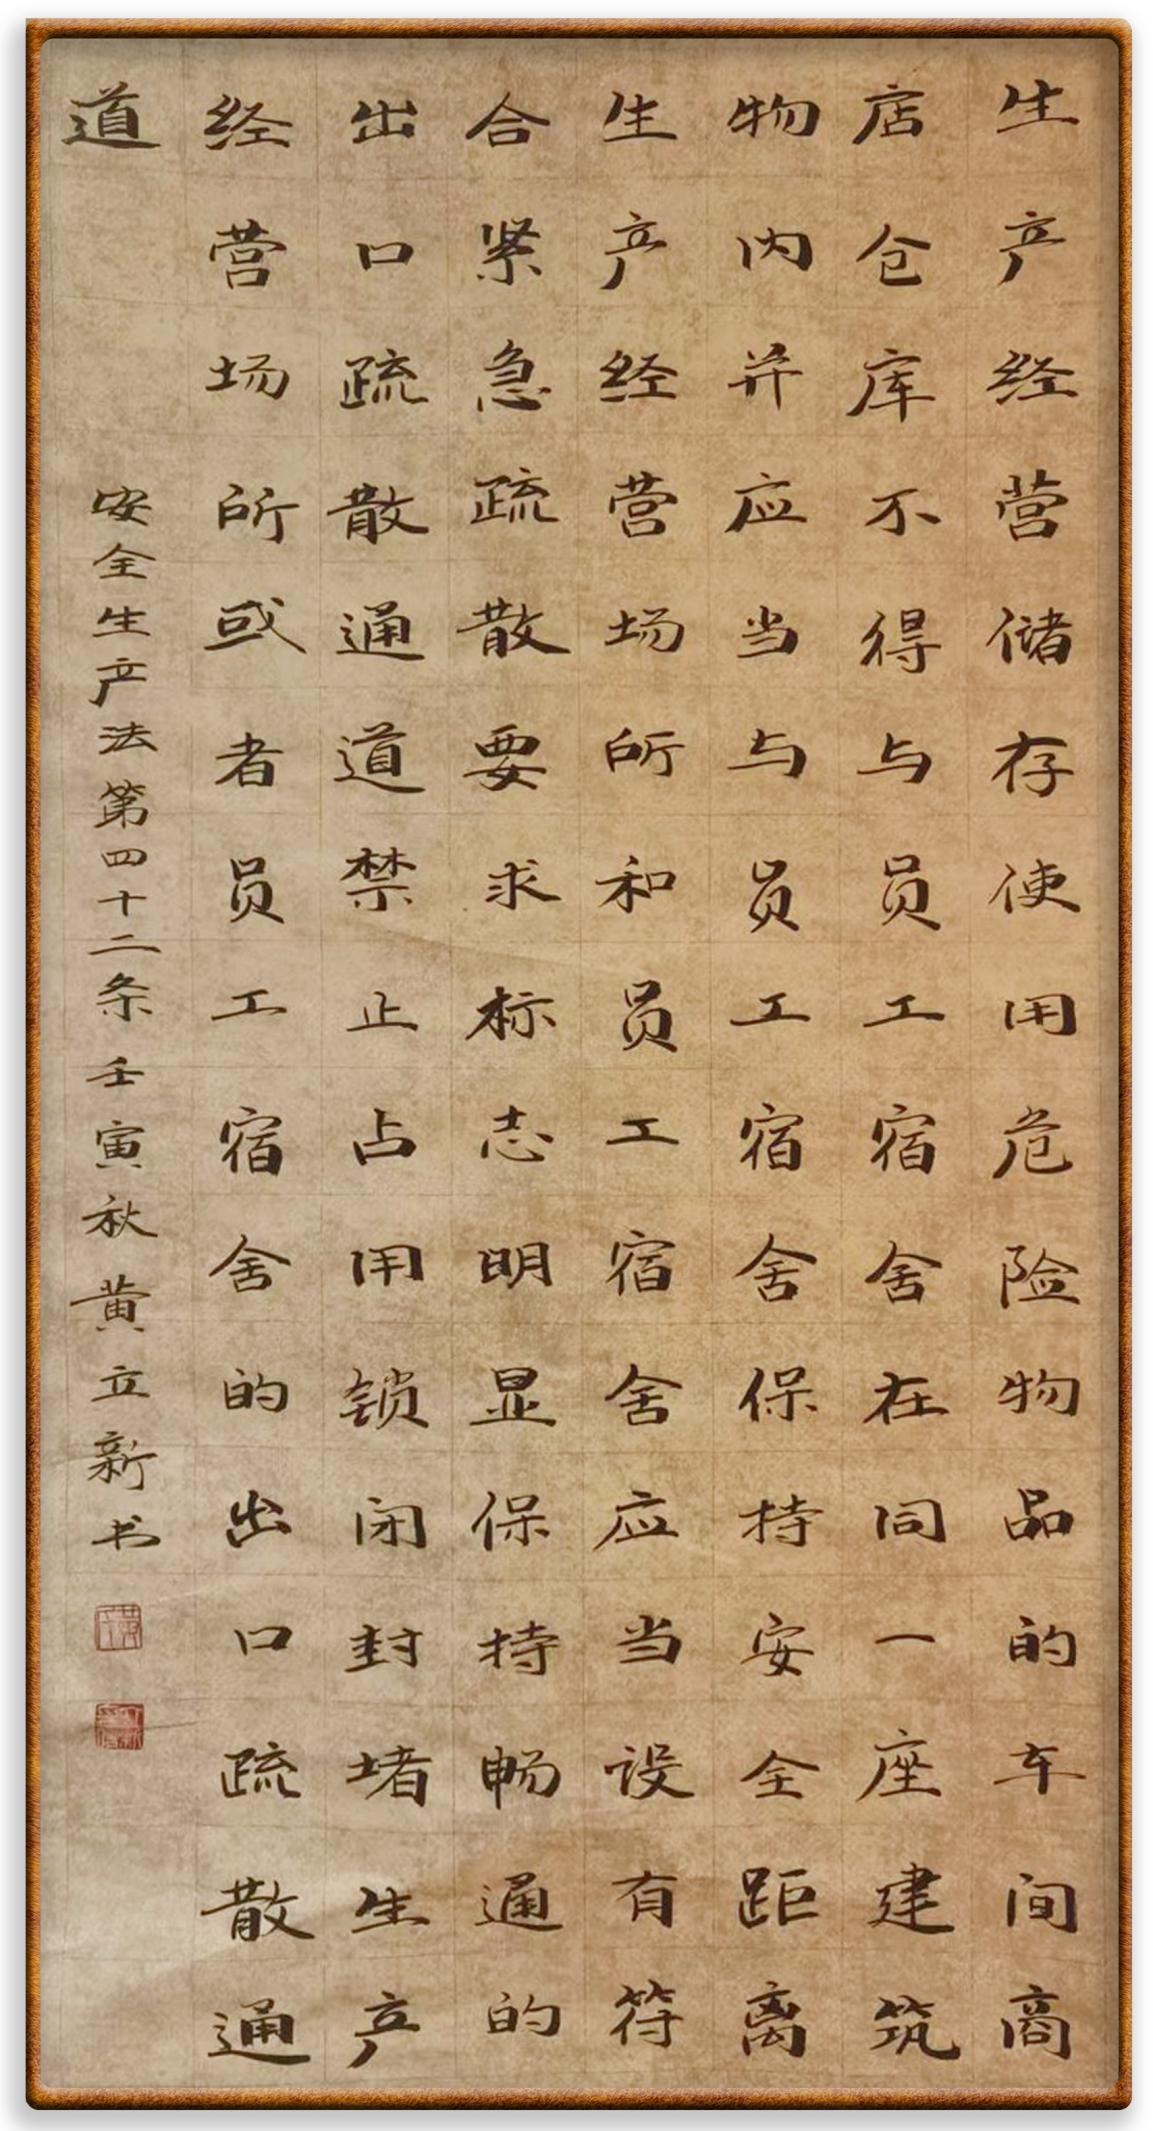 生产经营储存使用危险物品的车间商
店仓库不得与员工宿舍在同一座建筑
物内并应当与员工宿舍保持安全距离
生产经营场所和员工宿舍应当设有符
合紧急疏散要求标志明显保持畅通的
出口疏散通道禁止占用锁闭封堵生产
经营场所或者员工宿舍的出口疏散通
道
安全生产法第四十二条壬寅秋黄立新书